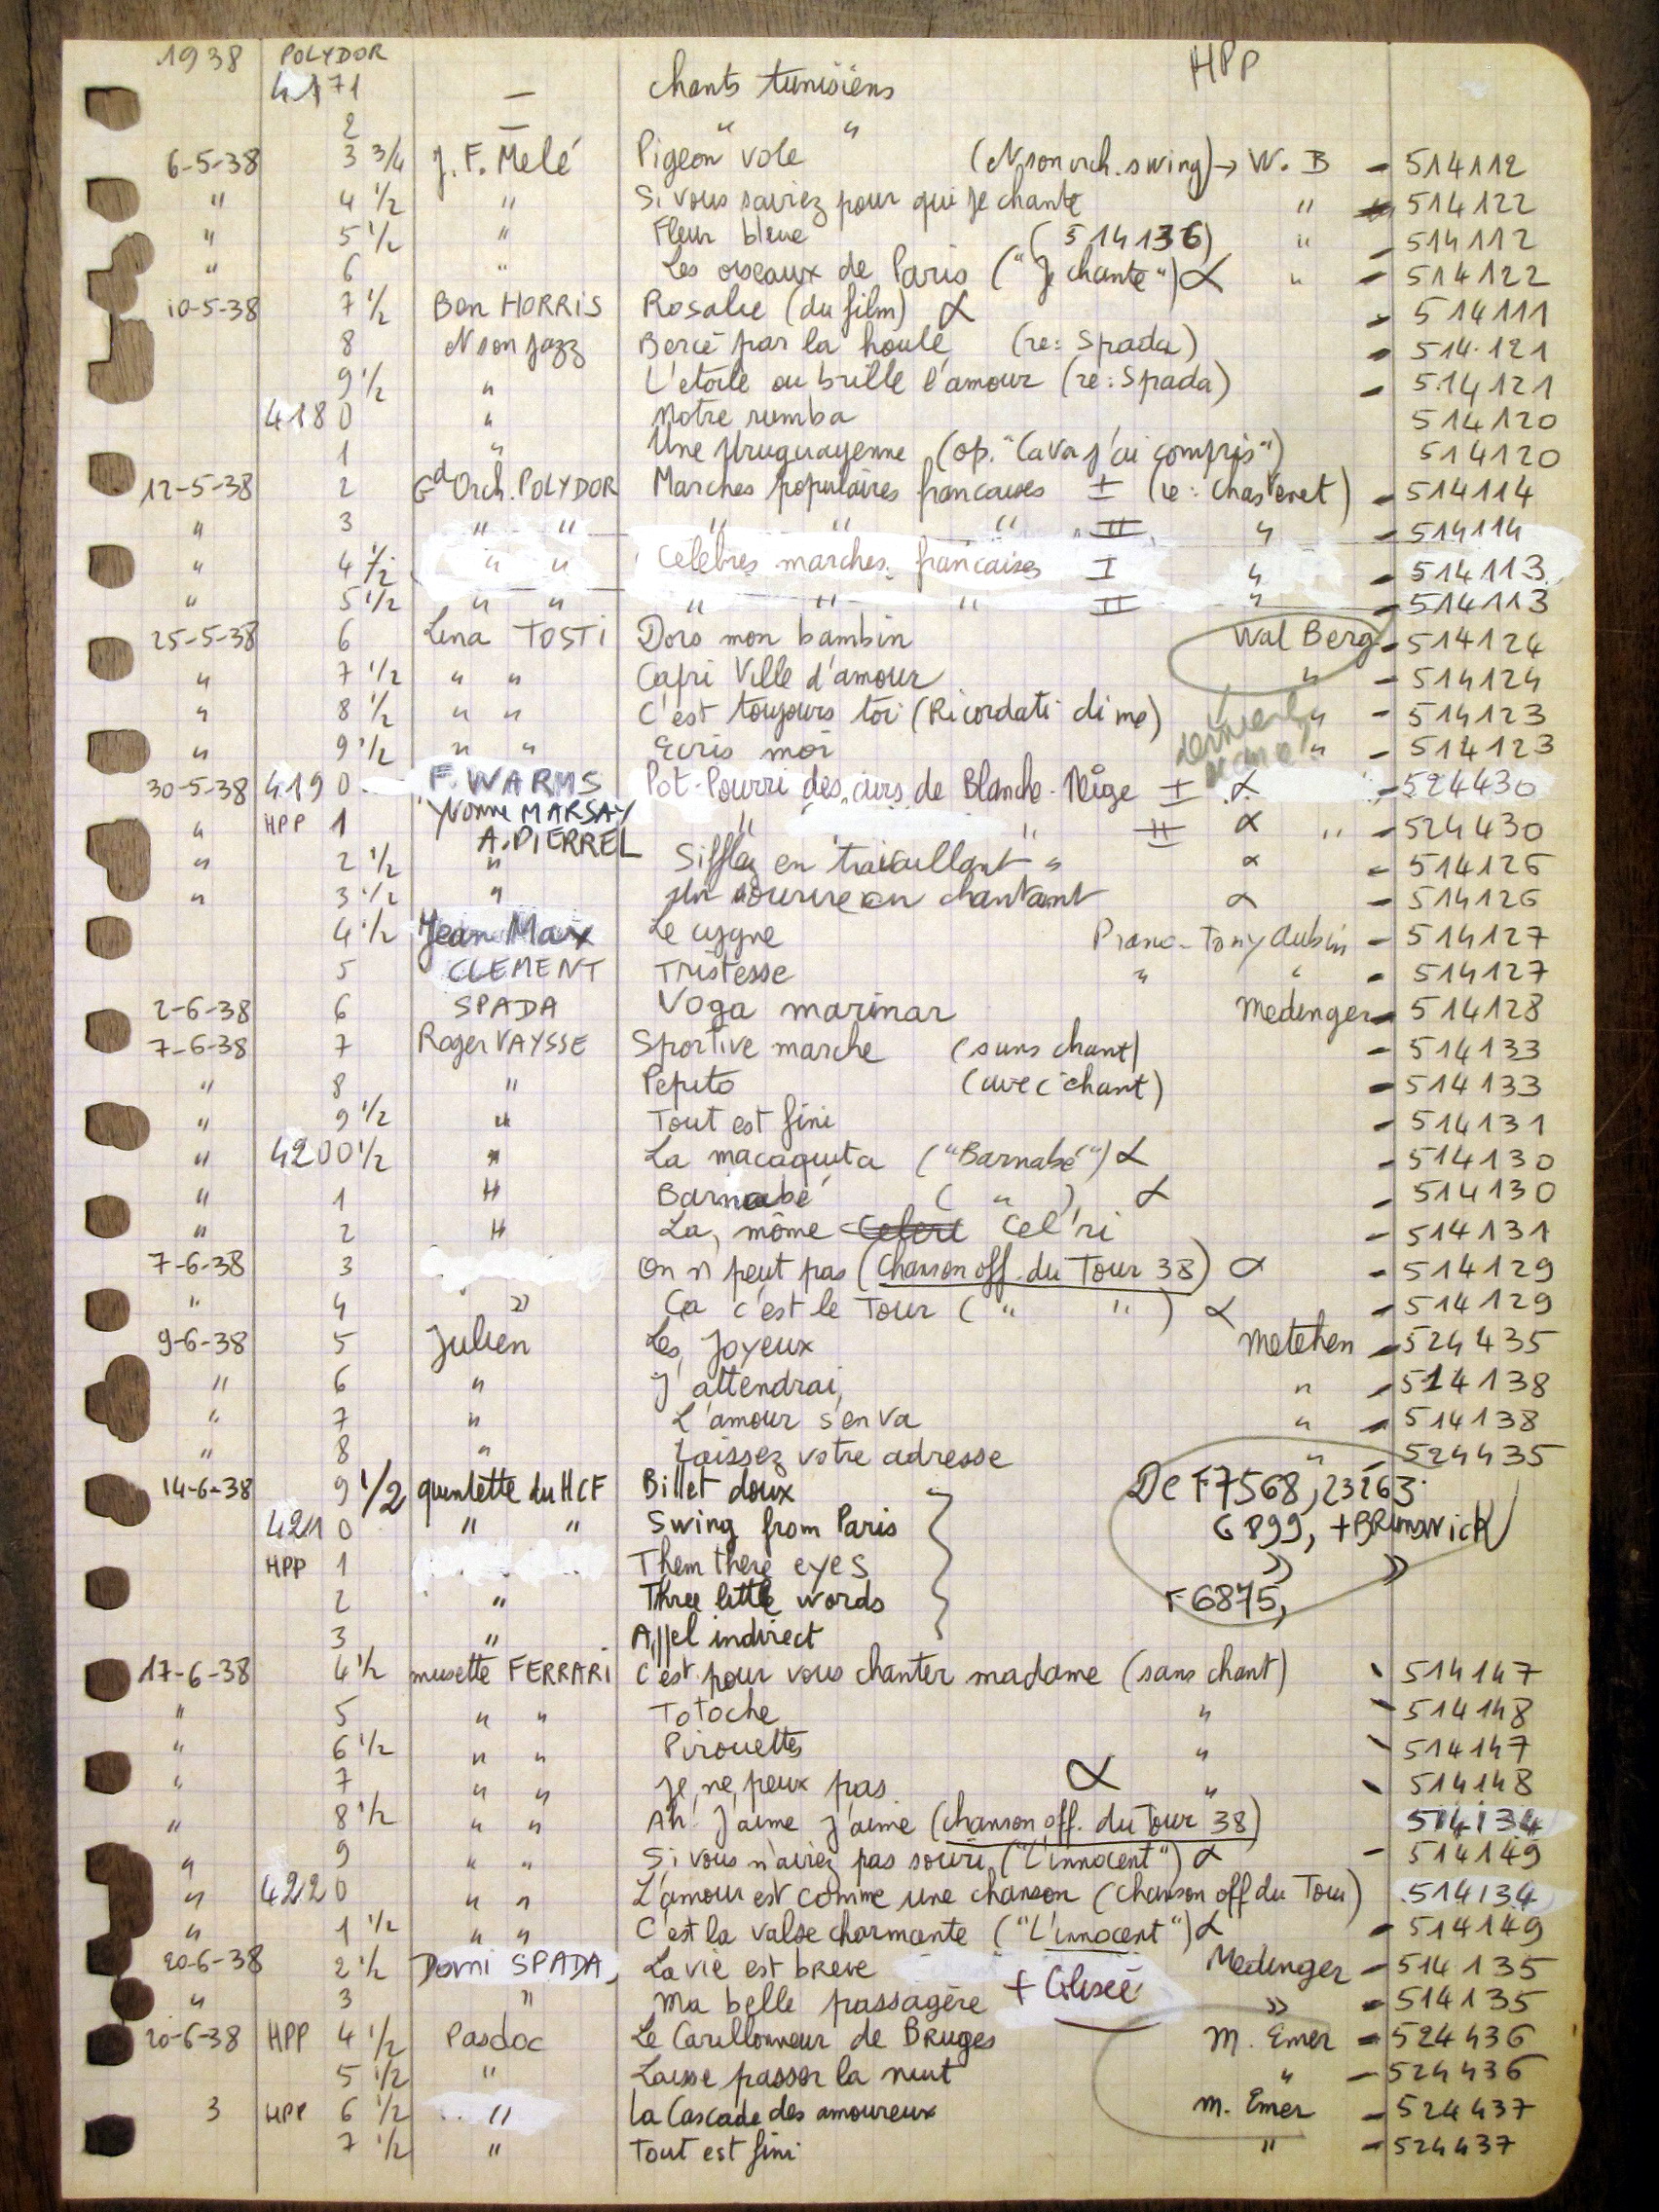 1938 POLYDOR HPP
4171 — chants tunisiens
2 — " "
6-5-38 3 3/4 J. F. Melé Pigeon vole (et son orch. swing) → W. B - 514112
" 4 1/2 " Si vous saviez pour qui je chante " - 514122
" 5 1/2 " Fleur bleue (514136) " - 514112
" 6 " Les oiseaux de Paris ("Je chante") α " - 514122
10-5-38 7 1/2 Ben HORRIS Rosalie (du film) α - 514111
8 et son jazz Bercé par la houle (re: Spada) - 514.121
9 1/2 " L'etoile ou brille l'amour (re: Spada) - 514121
4180 " Notre rumba 514120
1 " Une Uruguayenne (op. "Cava j'ai compris") 514120
12-5-38 2 Gd Orch. POLYDOR Marches populaires francaises I (re: Chastenet) - 514114
" 3 " " " " " II " - 514114
" 4 1/2 " " Celebres marches francaises I " - 514113
" 5 1/2 " " " " " II " - 514113
25-5-38 6 Lina TOSTI Dors mon bambin Wal Berg - 514124
" 7 1/2 " " Capri Ville d'amour " - 514124
" 8 1/2 " " C'est toujours toi (Ricordati di me) " - 514123
" 9 1/2 " " Ecris moi " - 514123
30-5-38 4190 F. WARMS Pot-Pourri des airs de Blanche-Neige I α - 524430
" HPP 1 Yvonne MARSAY " " II α " - 524430
A. PIERREL
" 2 1/2 " Sifflez en travaillant " α - 514126
" 3 1/2 " Un sourire en chantant α - 514126
4 1/2 Jean Max Le cygne Piano-Tony Aubin - 514127
5 CLEMENT Tristesse " " - 514127
2-6-38 6 SPADA Voga marinar Medinger - 514128
7-6-38 7 Roger VAYSSE Sportive marche (sans chant) - 514133
" 8 " Pepito (avec chant) - 514133
" 9 1/2 " Tout est fini - 514131
" 4200 1/2 " La macaquita ("Barnabé") α - 514130
" 1 " Barnabé ( " ) α - 514130
" 2 " La môme Cel'ri - 514131
7-6-38 3 On n'peut pas (Chanson off. du Tour 38) α - 514129
" 4 " Ça c'est le Tour ( " " ) α - 514129
9-6-38 5 Julien Les Joyeux Metehen - 524435
" 6 " J'attendrai " - 514138
" 7 " L'amour s'en va " - 514138
" 8 " Laissez votre adresse " - 524435
14-6-38 9 1/2 quintette du HCF Billet doux De F7568, 23263.
4210 " " Swing from Paris 6899, + BRunswick
HPP 1 Them there eyes " "
2 " Three little words F6875,
3 " Appel indirect
17-6-38 4 1/2 musette FERRARI C'est pour vous chanter madame (sans chant) - 514147
" 5 " " Totoche " - 514148
" 6 1/2 " " Pirouettes " - 514147
" 7 " " Je ne peux pas α " - 514148
" 8 1/2 " " Ah! J'aime J'aime (chanson off. du Tour 38) 514134
" 9 " " Si vous n'aviez pas souri ("L'innocent") α - 514149
" 4220 " " L'amour est comme une chanson (chanson off du Tour) 514134
" 1 1/2 " " C'est la valse charmante ("L'innocent") α - 514149
20-6-38 2 1/2 Domi SPADA La vie est breve Medinger - 514135
" 3 " Ma belle passagère + Elisée " - 514135
20-6-38 HPP 4 1/2 Pasdoc Le Carillonneur de BRuges M. Emer - 524436
5 1/2 " Laisse passer la nuit " - 524436
3 HPP 6 1/2 " La Cascade des amoureux M. Emer - 524437
7 1/2 " Tout est fini " - 524437